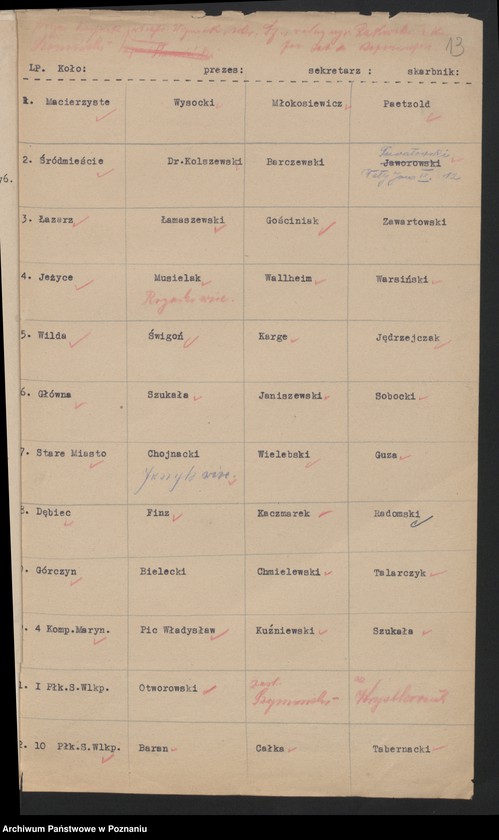 13
LP. Koło: prezes: sekretarz : skarbnik:
1. Macierzyste Wysocki Młokosiewicz Paetzold
2. Śródmieście Dr.Kolszewski Barczewski Jaworowski
76.
3. Łazarz Łamaszewski Gościniak Zawartowski
4. Jeżyce Musielak Wallheim Warsiński
5. Wilda Świgoń Karge Jędrzejczak
6. Główna Szukała Janiszewski Sobocki
7. Stare Miasto Chojnacki Wielebski Guza
8. Dębiec Finz Kaczmarek Radomski
. Górczyn Bielecki Chmielewski Talarczyk
. 4 Komp.Maryn. Pic Władysław Kuźniewski Szukała
1. I Płk.S.Wlkp. Otworowski
2. 10 Płk.S.Wlkp. Baran Całka Tabernacki
Archiwum Państwowe w Poznaniu